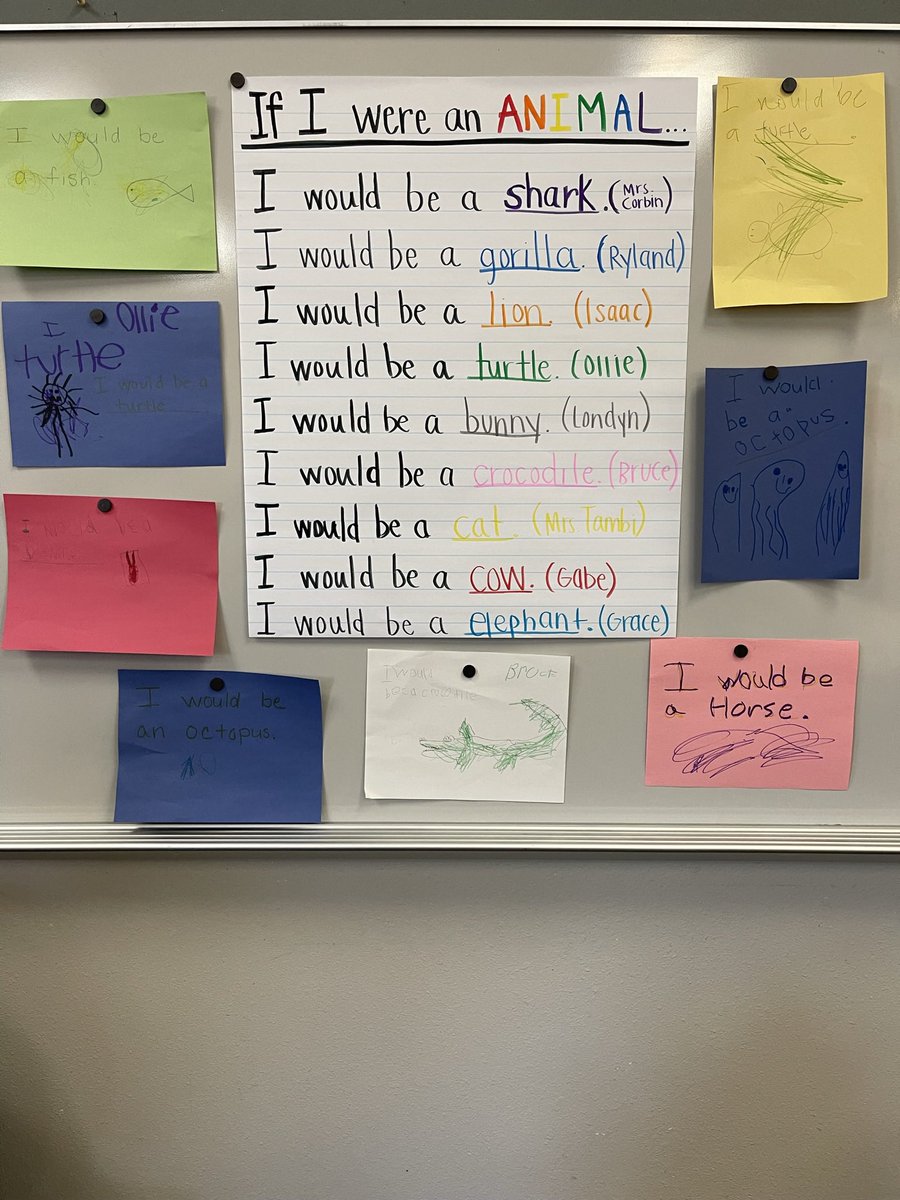 If I were an ANIMAL...
I would be a shark. (Mrs. Corbin)
I would be a gorilla. (Ryland)
I would be a lion. (Isaac)
I would be a turtle. (Ollie)
I would be a bunny. (Londyn)
I would be a crocodile. (Bruce)
I would be a cat. (Mrs. Tambi)
I would be a cow. (Gabe)
I would be a elephant. (Grace)
I would be
a fish.
I Ollie
turtle
I would be a
turtle
I would be a
I would be
an octopus.
I would
be a crocodile
Bruce
I would be
a Horse.
I would
be a
octopus.
I would be
a turtle.